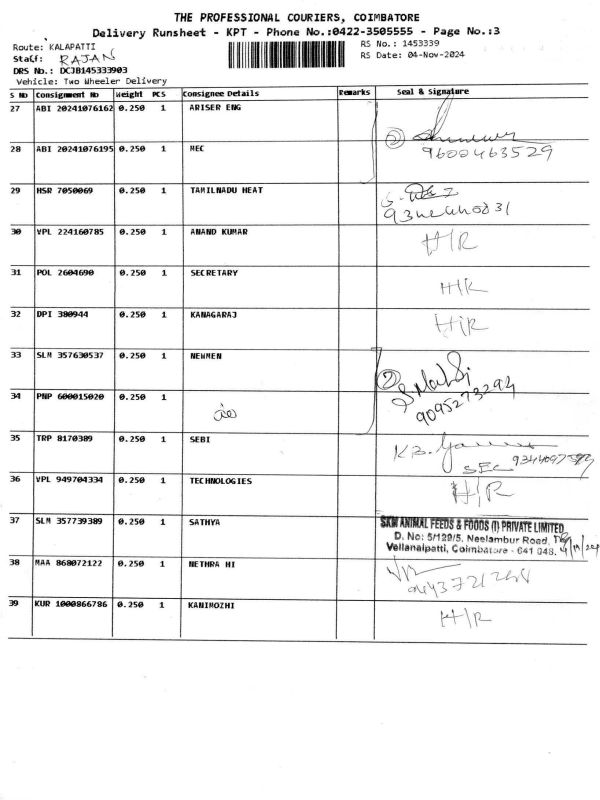 THE PROFESSIONAL COURIERS, COIMBATORE
Delivery Runsheet - KPT - Phone No.:0422-3505555 - Page No.:3
Route: KALAPATTI
RS No.: 1453339
Staff: RAJAN
RS Date: 04-Nov-2024
DRS No.: DCJB145333903
Vehicle: Two Wheeler Delivery
S No Consignment No Weight PCS Consignee Details Remarks Seal & Signature
27 ABI 20241076162 0.250 1 ARISER ENG
28 ABI 20241076195 0.250 1 MEC
2
9600463529
29 HSR 7050069 0.250 1 TAMILNADU HEAT
30 VPL 224160785 0.250 1 ANAND KUMAR H/R
31 POL 2604690 0.250 1 SECRETARY H/R
32 DPI 380944 0.250 1 KANAGARAJ H/R
33 SLM 357630537 0.250 1 NEWMEN
2
34 PNP 600015020 0.250 1
9095273294
35 TRP 8170389 0.250 1 SEBI
SEC
36 VPL 949704334 0.250 1 TECHNOLOGIES H/R
37 SLM 357739389 0.250 1 SATHYA
SKM ANIMAL FEEDS & FOODS (I) PRIVATE LIMITED
D. No: 5/129/5, Neelambur Road,
Vellanaipatti, Coimbatore - 641 048.
38 MAA 868072122 0.250 1 NETHRA HI
39 KUR 1000866786 0.250 1 KANIMOZHI H/R